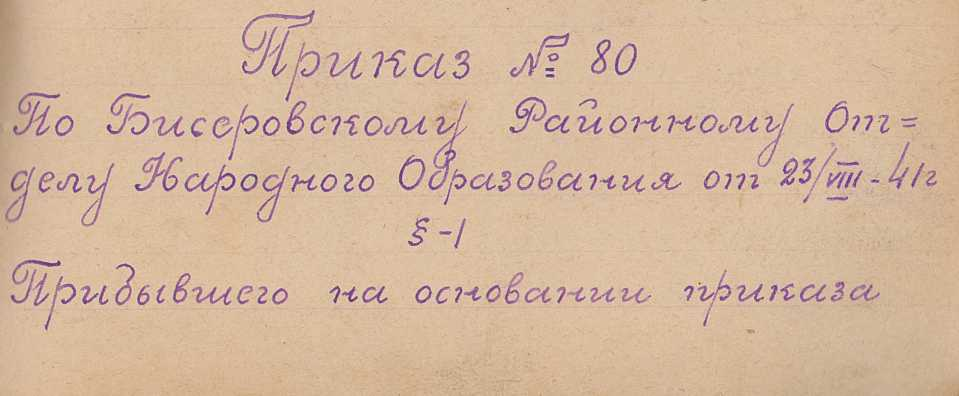 Приказ № 80
По Бисеровскому Районному От=
делу Народного Образования от 23/VIII-41г
§-1
Прибывшего на основании приказа